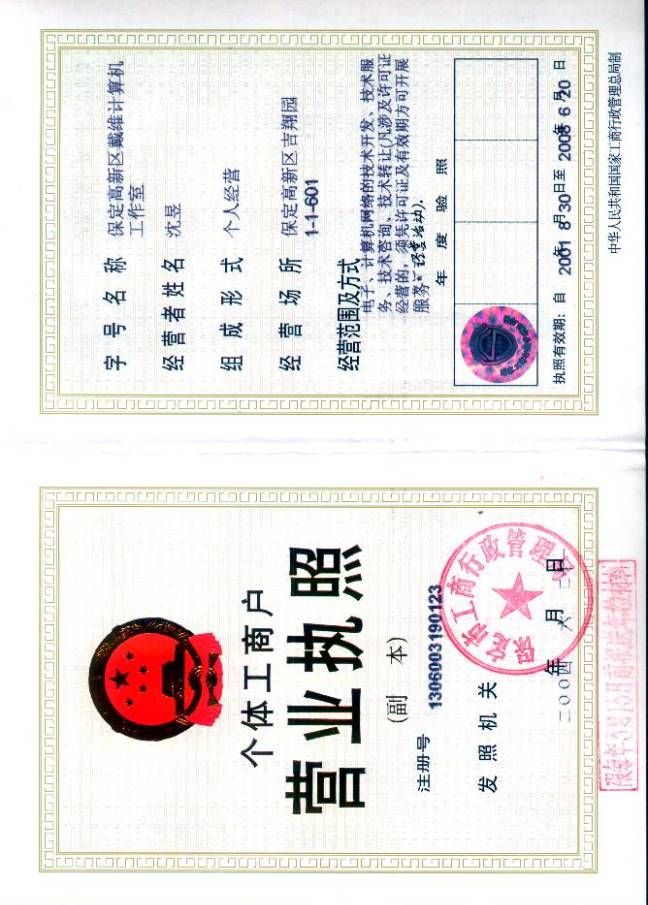 个体工商户
营业执照
(副 本)
注册号 1306003190123
发照机关
二00四年 六月 二 日
保定市工商行政管理局
字号名称 保定高新区戴维计算机
工作室
经营者姓名 沈昱
组成形式 个人经营
经营场所 保定高新区吉翔园
1-1-601
经营范围及方式
电子、计算机网络的技术开发、技术服
务、技术咨询、技术转让(凡涉及许可证
经营的,须凭许可证及有效期方可开展
服务 经营活动).
年度验照
执照有效期:自 2001年 8月30日至 2008年 6月20日
中华人民共和国国家工商行政管理总局制